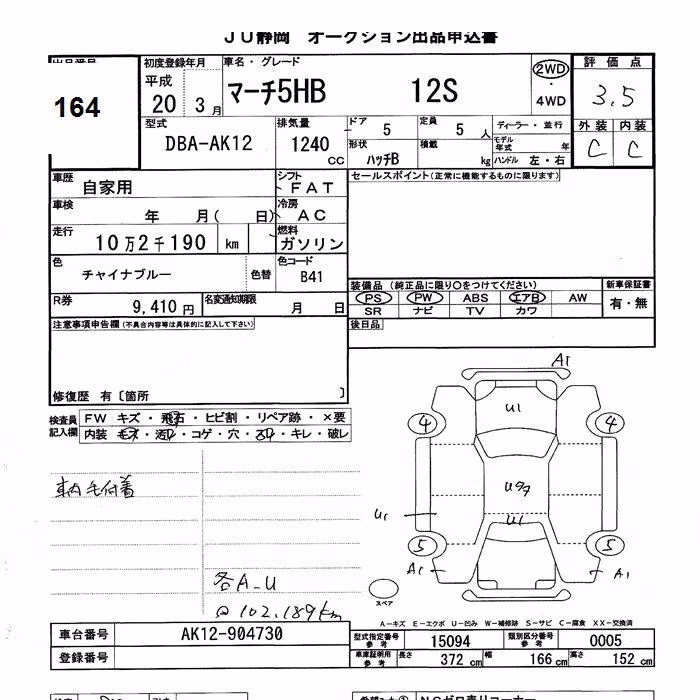 JU静岡 オークション出品申込書
出品番号 初度登録年月 車名・グレード 評価点
164
平成 20 3月 マーチ5HB 12S 2WD・4WD 3.5
型式 DBA-AK12 排気量 1240 CC ドア 5 定員 5 人 ディーラー・並行 外装 内装
形状 ハッチB 積載 kg モデル年式 年 ハンドル 左・右 C C
車歴 自家用 シフト FAT セールスポイント(正常に機能するものに限ります)
車検 年 月( 日) 冷房 AC
走行 10万2千190 km 燃料 ガソリン
色 チャイナブルー 色替 色コード B41
装備品(純正品に限り○をつけてください) 新車保証書
R券 9,410円 名変通知期限 月 日 PS PW ABS エアB AW 有・無
SR ナビ TV カワ
注意事項申告欄(不具合内容等は具体的に記入して下さい) 後日品
修復歴 有〔箇所 〕
検査員記入欄 FW キズ・飛石・ヒビ割・リペア跡・×要
内装 モズ・汚れ・コゲ・穴・スレ・キレ・破レ
A1
U1
4 4
車内毛付着
U97
U1 U1
5 5
A1 A1
各A-U
スペア
@102.189km
A-キズ E-エクボ U-凹み W-補修跡 S-サビ C-腐食 XX-交換済
車台番号 AK12-904730 型式指定番号 参考 15094 類別区分番号 参考 0005
登録番号 車庫証明用 参考 長さ 372 cm 幅 166 cm 高さ 152 cm